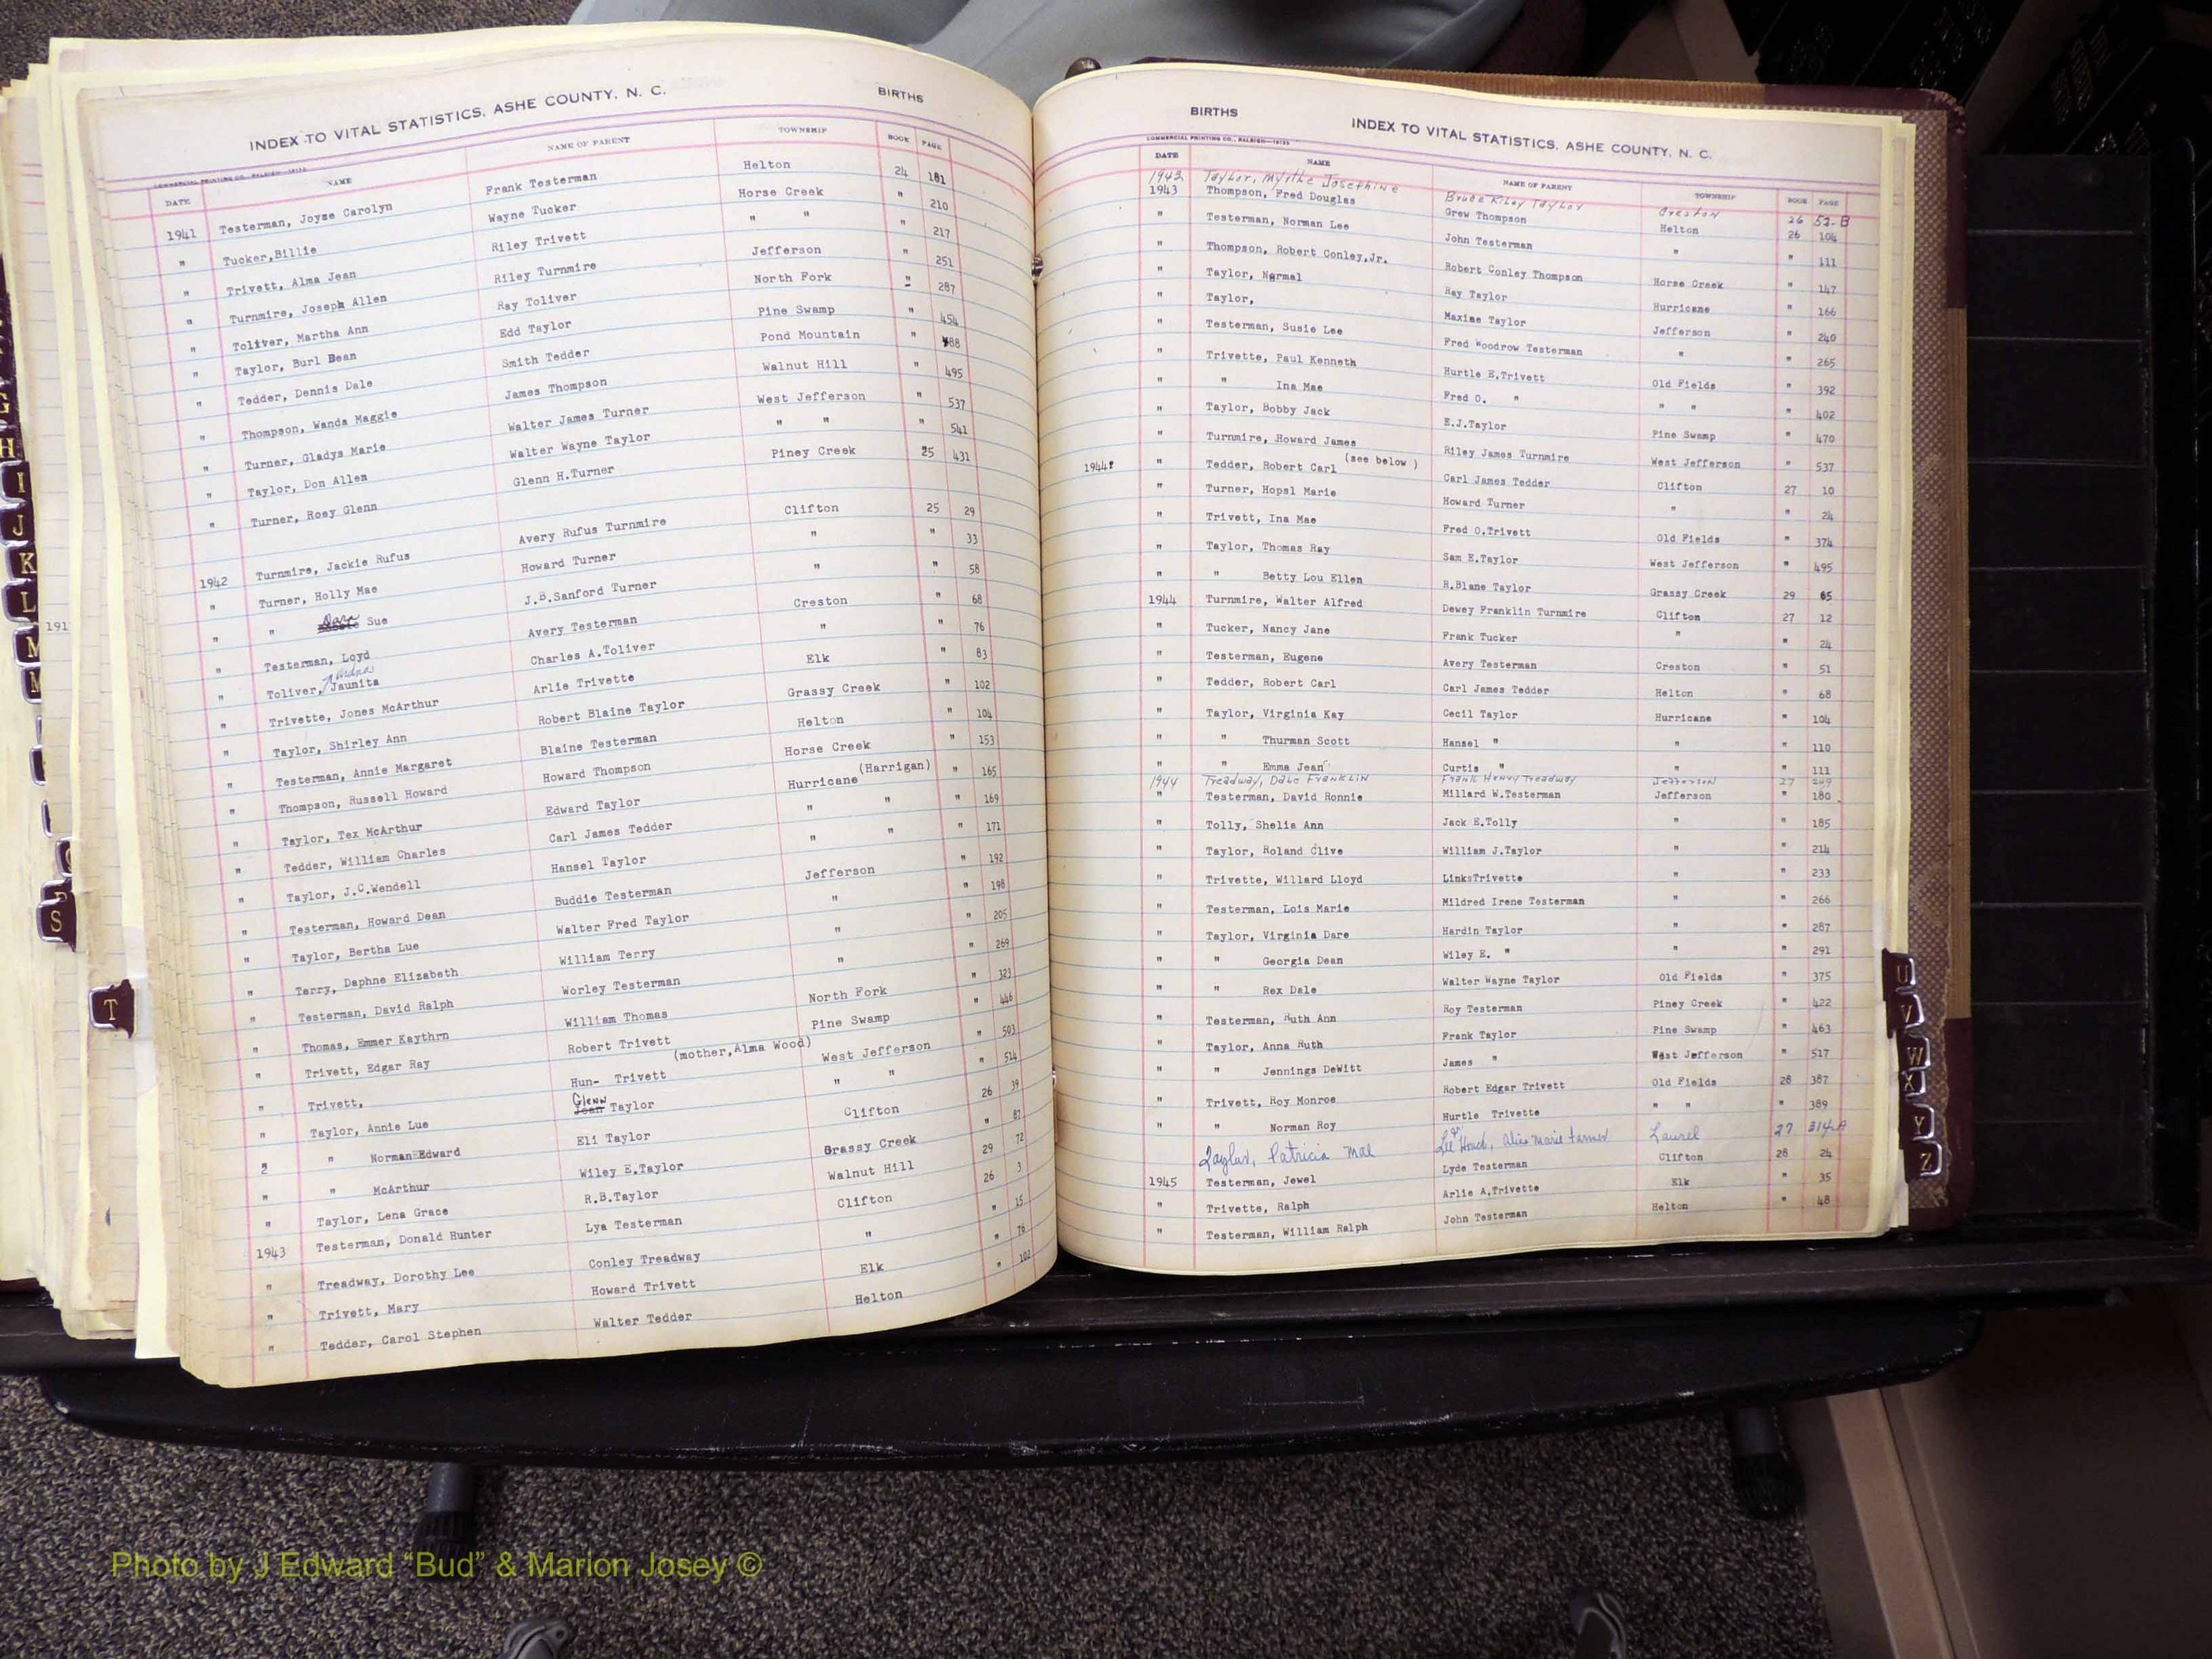 INDEX TO VITAL STATISTICS, ASHE COUNTY, N. C. BIRTHS
COMMERCIAL PRINTING CO., RALEIGH
DATE NAME NAME OF PARENT TOWNSHIP BOOK PAGE
1941 Testerman, Joyse Carolyn Frank Testerman Helton 24 181
" Tucker,Billie Wayne Tucker Horse Creek " 210
" Trivett, Alma Jean Riley Trivett " " " 217
" Turnmire, Joseph Allen Riley Turnmire Jefferson " 251
" Toliver, Martha Ann Ray Toliver North Fork " 287
" Taylor, Burl Bean Edd Taylor Pine Swamp " 454
" Tedder, Dennis Dale Smith Tedder Pond Mountain " 488
" Thompson, Wanda Maggie James Thompson Walnut Hill " 495
" Turner, Gladys Marie Walter James Turner West Jefferson " 537
" Taylor, Don Allen Walter Wayne Taylor " " " 541
" Turner, Rosy Glenn Glenn H.Turner Piney Creek 25 431
1942 Turnmire, Jackie Rufus Avery Rufus Turnmire Clifton 25 29
" Turner, Holly Mae Howard Turner " " 33
" " Sue J.B.Sanford Turner " " 58
" Testerman, Loyd Avery Testerman Creston " 68
" Toliver, Jaunita Charles A.Toliver " " 76
" Trivette, Jones McArthur Arlie Trivette Elk " 83
" Taylor, Shirley Ann Robert Blaine Taylor Grassy Creek " 102
" Testerman, Annie Margaret Blaine Testerman Helton " 104
" Thompson, Russell Howard Howard Thompson Horse Creek " 153
" Taylor, Tex McArthur Edward Taylor Hurricane (Harrigan) " 165
" Tedder, William Charles Carl James Tedder " " " 169
" Taylor, J.C.Wendell Hansel Taylor " " " 171
" Testerman, Howard Dean Buddie Testerman Jefferson " 192
" Taylor, Bertha Lue Walter Fred Taylor " " 198
" Terry, Daphne Elizabeth William Terry " " 205
" Testerman, David Ralph Worley Testerman " " 269
" Thomas, Emmer Kaythrn William Thomas North Fork " 323
" Trivett, Edgar Ray Robert Trivett Pine Swamp " 446
" Trivett, Hun- Trivett (mother,Alma Wood) West Jefferson " 503
" Taylor, Annie Lue Glenn Taylor " " " 514
2 " Norman Edward Eli Taylor Clifton 26 39
" " McArthur Wiley E.Taylor Grassy Creek " 87
" Taylor, Lena Grace R.B.Taylor Walnut Hill 29 72
1943 Testerman, Donald Hunter Lya Testerman Clifton 26 3
" Treadway, Dorothy Lee Conley Treadway " " 15
" Trivett, Mary Howard Trivett Elk " 76
" Tedder, Carol Stephen Walter Tedder Helton " 102
BIRTHS INDEX TO VITAL STATISTICS, ASHE COUNTY, N. C.
COMMERCIAL PRINTING CO., RALEIGH
DATE NAME NAME OF PARENT TOWNSHIP BOOK PAGE
1943 Taylor, Myrtle Josephine Bruce Riley Taylor Creston 26 52-B
1943 Thompson, Fred Douglas Grew Thompson Helton 26 104
" Testerman, Norman Lee John Testerman " " 111
" Thompson, Robert Conley,Jr. Robert Conley Thompson Horse Creek " 147
" Taylor, Normal Ray Taylor Hurricane " 166
" Taylor, Maxine Taylor Jefferson " 240
" Testerman, Susie Lee Fred Woodrow Testerman " " 265
" Trivette, Paul Kenneth Hurtle E.Trivett Old Fields " 392
" " Ina Mae Fred O. " " " " 402
" Taylor, Bobby Jack E.J.Taylor Pine Swamp " 470
" Turnmire, Howard James Riley James Turnmire West Jefferson " 537
1944? " Tedder, Robert Carl (see below ) Carl James Tedder Clifton 27 10
" Turner, Hopsl Marie Howard Turner " " 24
" Trivett, Ina Mae Fred O.Trivett Old Fields " 374
" Taylor, Thomas Ray Sam E.Taylor West Jefferson " 495
" " Betty Lou Ellen R.Blane Taylor Grassy Creek 29 65
1944 Turnmire, Walter Alfred Dewey Franklin Turnmire Clifton 27 12
" Tucker, Nancy Jane Frank Tucker " " 24
" Testerman, Eugene Avery Testerman Creston " 51
" Tedder, Robert Carl Carl James Tedder Helton " 68
" Taylor, Virginia Kay Cecil Taylor Hurricane " 104
" " Thurman Scott Hansel " " " 110
" " Emma Jean Curtis " " " 111
1944 Treadway, Dale Franklin Frank Henry Treadway Jefferson 27
" Testerman, David Ronnie Millard W.Testerman Jefferson " 180
" Tolly, Shelia Ann Jack E.Tolly " " 185
" Taylor, Roland Clive William J.Taylor " " 214
" Trivette, Willard Lloyd LinksTrivette " " 233
" Testerman, Lois Marie Mildred Irene Testerman " " 266
" Taylor, Virginia Dare Hardin Taylor " " 287
" " Georgia Dean Wiley E. " " " 291
" " Rex Dale Walter Wayne Taylor Old Fields " 375
" Testerman, Ruth Ann Roy Testerman Piney Creek " 422
" Taylor, Anna Ruth Frank Taylor Pine Swamp " 463
" " Jennings DeWitt James " West Jefferson " 517
" Trivett, Roy Monroe Robert Edgar Trivett Old Fields 28 387
" " Norman Roy Hurtle Trivette " " " 389
Taylor, Patricia Mae Alice Marie Farmer Laurel 27 314-A
1945 Testerman, Jewel Lyde Testerman Clifton 28 24
" Trivette, Ralph Arlie A.Trivette Elk " 35
" Testerman, William Ralph John Testerman Helton " 48
191
H
I
J
K
L
M
S
T
U
V
W
X
Y
Z
Photo by J Edward “Bud” & Marion Josey ©